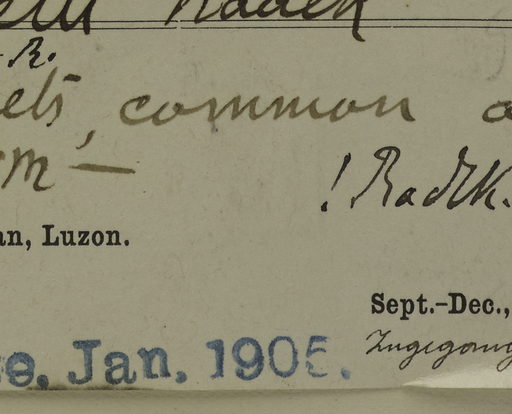 Radlk
R.
ets, common
m —
! Radlk.
an, Luzon.
Sept.-Dec.,
e, Jan. 1905.
Zugegang